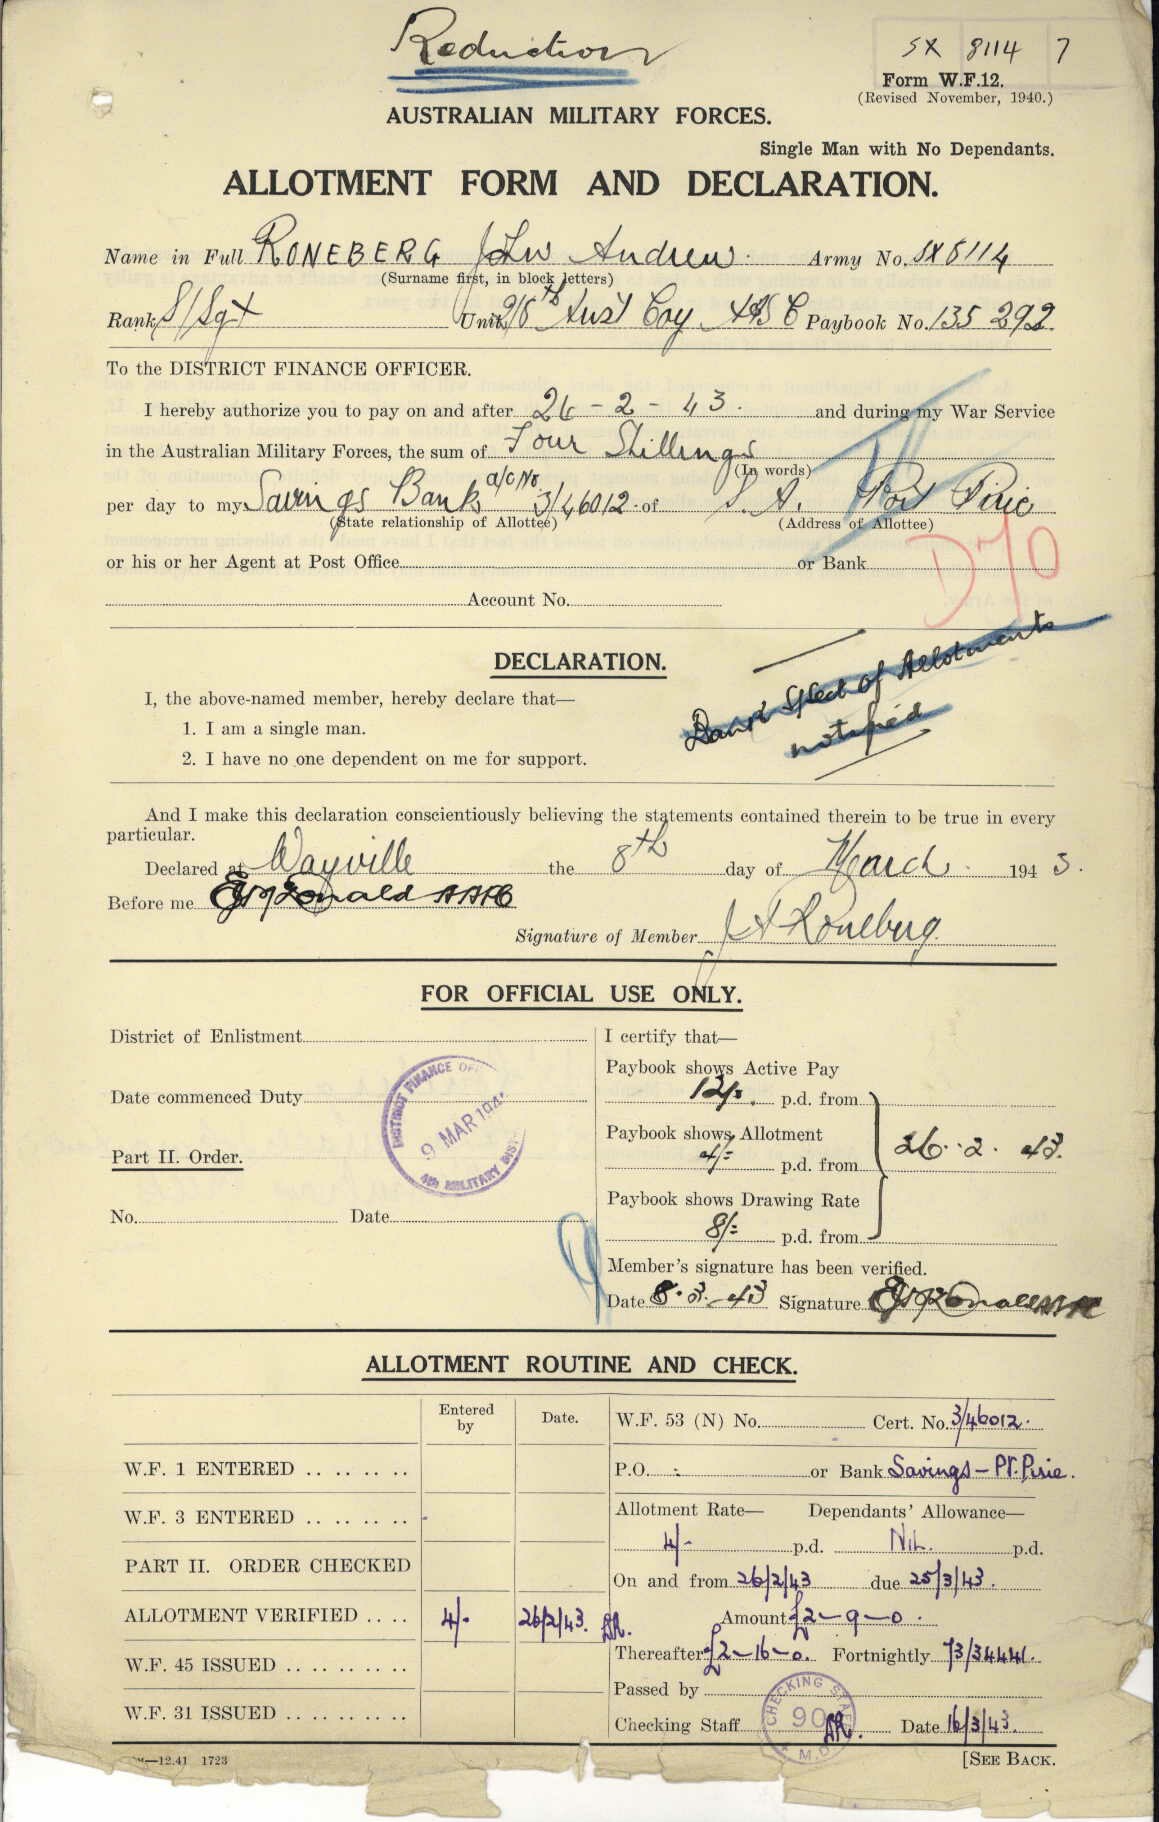 Reduction
SX 8114 7
Form W.F.12.
(Revised November, 1940.)
AUSTRALIAN MILITARY FORCES.
Single Man with No Dependants.
ALLOTMENT FORM AND DECLARATION.
Name in Full RONEBERG John Andrew. Army No. SX8114
(Surname first, in block letters)
Rank S/Sgt Unit 2/6th Aust Coy AASC Paybook No. 135 292
To the DISTRICT FINANCE OFFICER.
I hereby authorize you to pay on and after 26-2-43. and during my War Service
in the Australian Military Forces, the sum of Four Shillings
(In words)
per day to my Savings Bank a/c No 3/46012 of S.A. Port Pirie
(State relationship of Allottee) (Address of Allottee)
or his or her Agent at Post Office or Bank
D70
Account No.
DECLARATION.
I, the above-named member, hereby declare that—
1. I am a single man.
2. I have no one dependent on me for support.
of Allotments
notified
And I make this declaration conscientiously believing the statements contained therein to be true in every
particular.
Declared at Wayville the 8th day of March 1943.
Before me
Signature of Member J A Roneberg.
FOR OFFICIAL USE ONLY.
District of Enlistment
Date commenced Duty
Part II. Order.
No. Date
DISTRICT FINANCE OF
9 MAR 194
4th MILITARY DIST
I certify that—
Paybook shows Active Pay
12/-. p.d. from
Paybook shows Allotment
4/- p.d. from 26.2.43.
Paybook shows Drawing Rate
8/- p.d. from
Member's signature has been verified.
Date 8.3.43 Signature
ALLOTMENT ROUTINE AND CHECK.
Entered by Date.
W.F. 1 ENTERED .. .. .. ..
W.F. 3 ENTERED .. .. .. ..
PART II. ORDER CHECKED
ALLOTMENT VERIFIED .. .. 4/- 26/2/43.
W.F. 45 ISSUED .. .. .. .. ..
W.F. 31 ISSUED .. .. .. .. ..
W.F. 53 (N) No. Cert. No. 3/46012.
P.O. or Bank Savings - Pt. Pirie.
Allotment Rate— Dependants' Allowance—
4/- p.d. NIL. p.d.
On and from 26/2/43 due 25/3/43.
Amount £2-9-0.
Thereafter £2-16-0. Fortnightly 73/34441.
Passed by
Checking Staff Date 16/3/43.
CHECKING STAFF
90
M.D.
—12.41 1723
[SEE BACK.